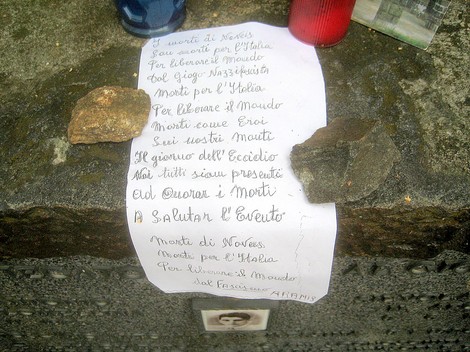 I morti di Noveis
Son morti per l'Italia
Per liberare il Mondo
Dal giogo Nazzifascista
Morti per l'Italia
Per liberare il Mondo
Morti come Eroi
Sui nostri monti
Il giorno dell'Eccidio
Noi tutti siam presenti
ad Onorar i Morti
A Salutar l'Evento
Morti di Noveis
Morti per l'Italia
Per liberare il Mondo
dal Fascismo